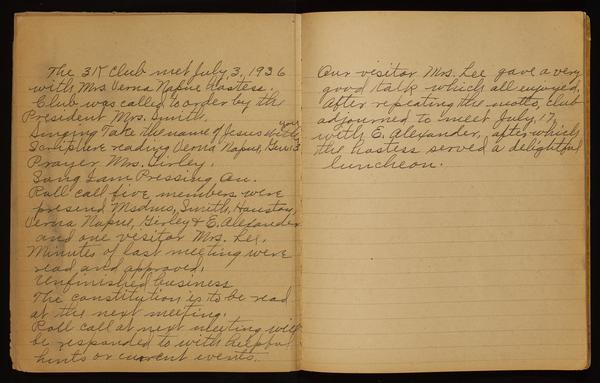 The 3K Club met July, 3, 1936
with Mrs. Verna Napue hostess.
Club was called to order by the
President Mrs. Smith.
Singing Take the name of Jesus with you
Scripture reading Verna Napue,
Prayer Mrs. Girley.
Song I am Pressing On.
Roll call five members were
present Msdms, Smith, Hauston,
Verna Napue, Girley & E. Alexander
and one visitor Mrs. Lee.
Minutes of last meeting were
read and approved.
Unfinished business
The constitution is to be read
at the next meeting.
Roll call at next meeting will
be responded to with helpful
hints or current events.
Our visitor Mrs. Lee gave a very
good talk which all enjoyed.
After repeating the motto, club
adjourned to meet July, 17
with E. Alexander, after which
the hostess served a delightful
luncheon.